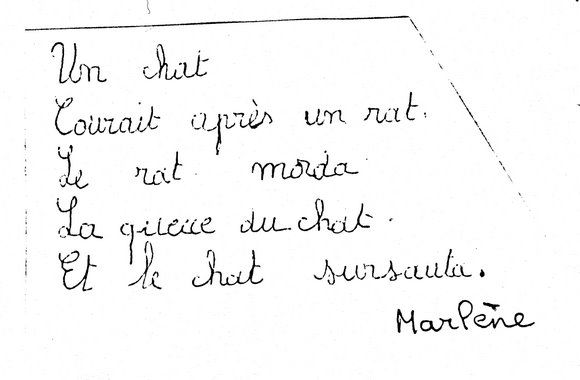 Un chat
Courait après un rat.
Le rat morda
La queue du chat.
Et le chat sursauta.
Marlène